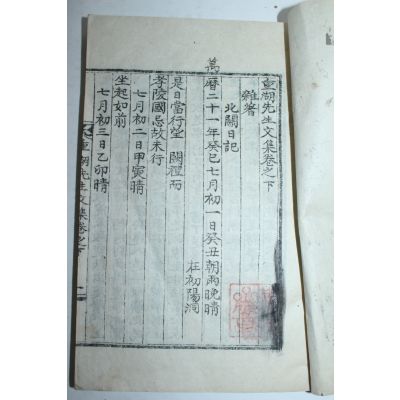 重湖先生文集卷之下
雜著
北關日記
萬曆二十一年癸巳七月初一日癸丑朝雨晩晴
在初陽洞
是日當行望 闕禮而
孝陵國忌故未行
七月初二日甲寅晴
坐起如前
七月初三日乙卯晴
重湖先生文集卷之下